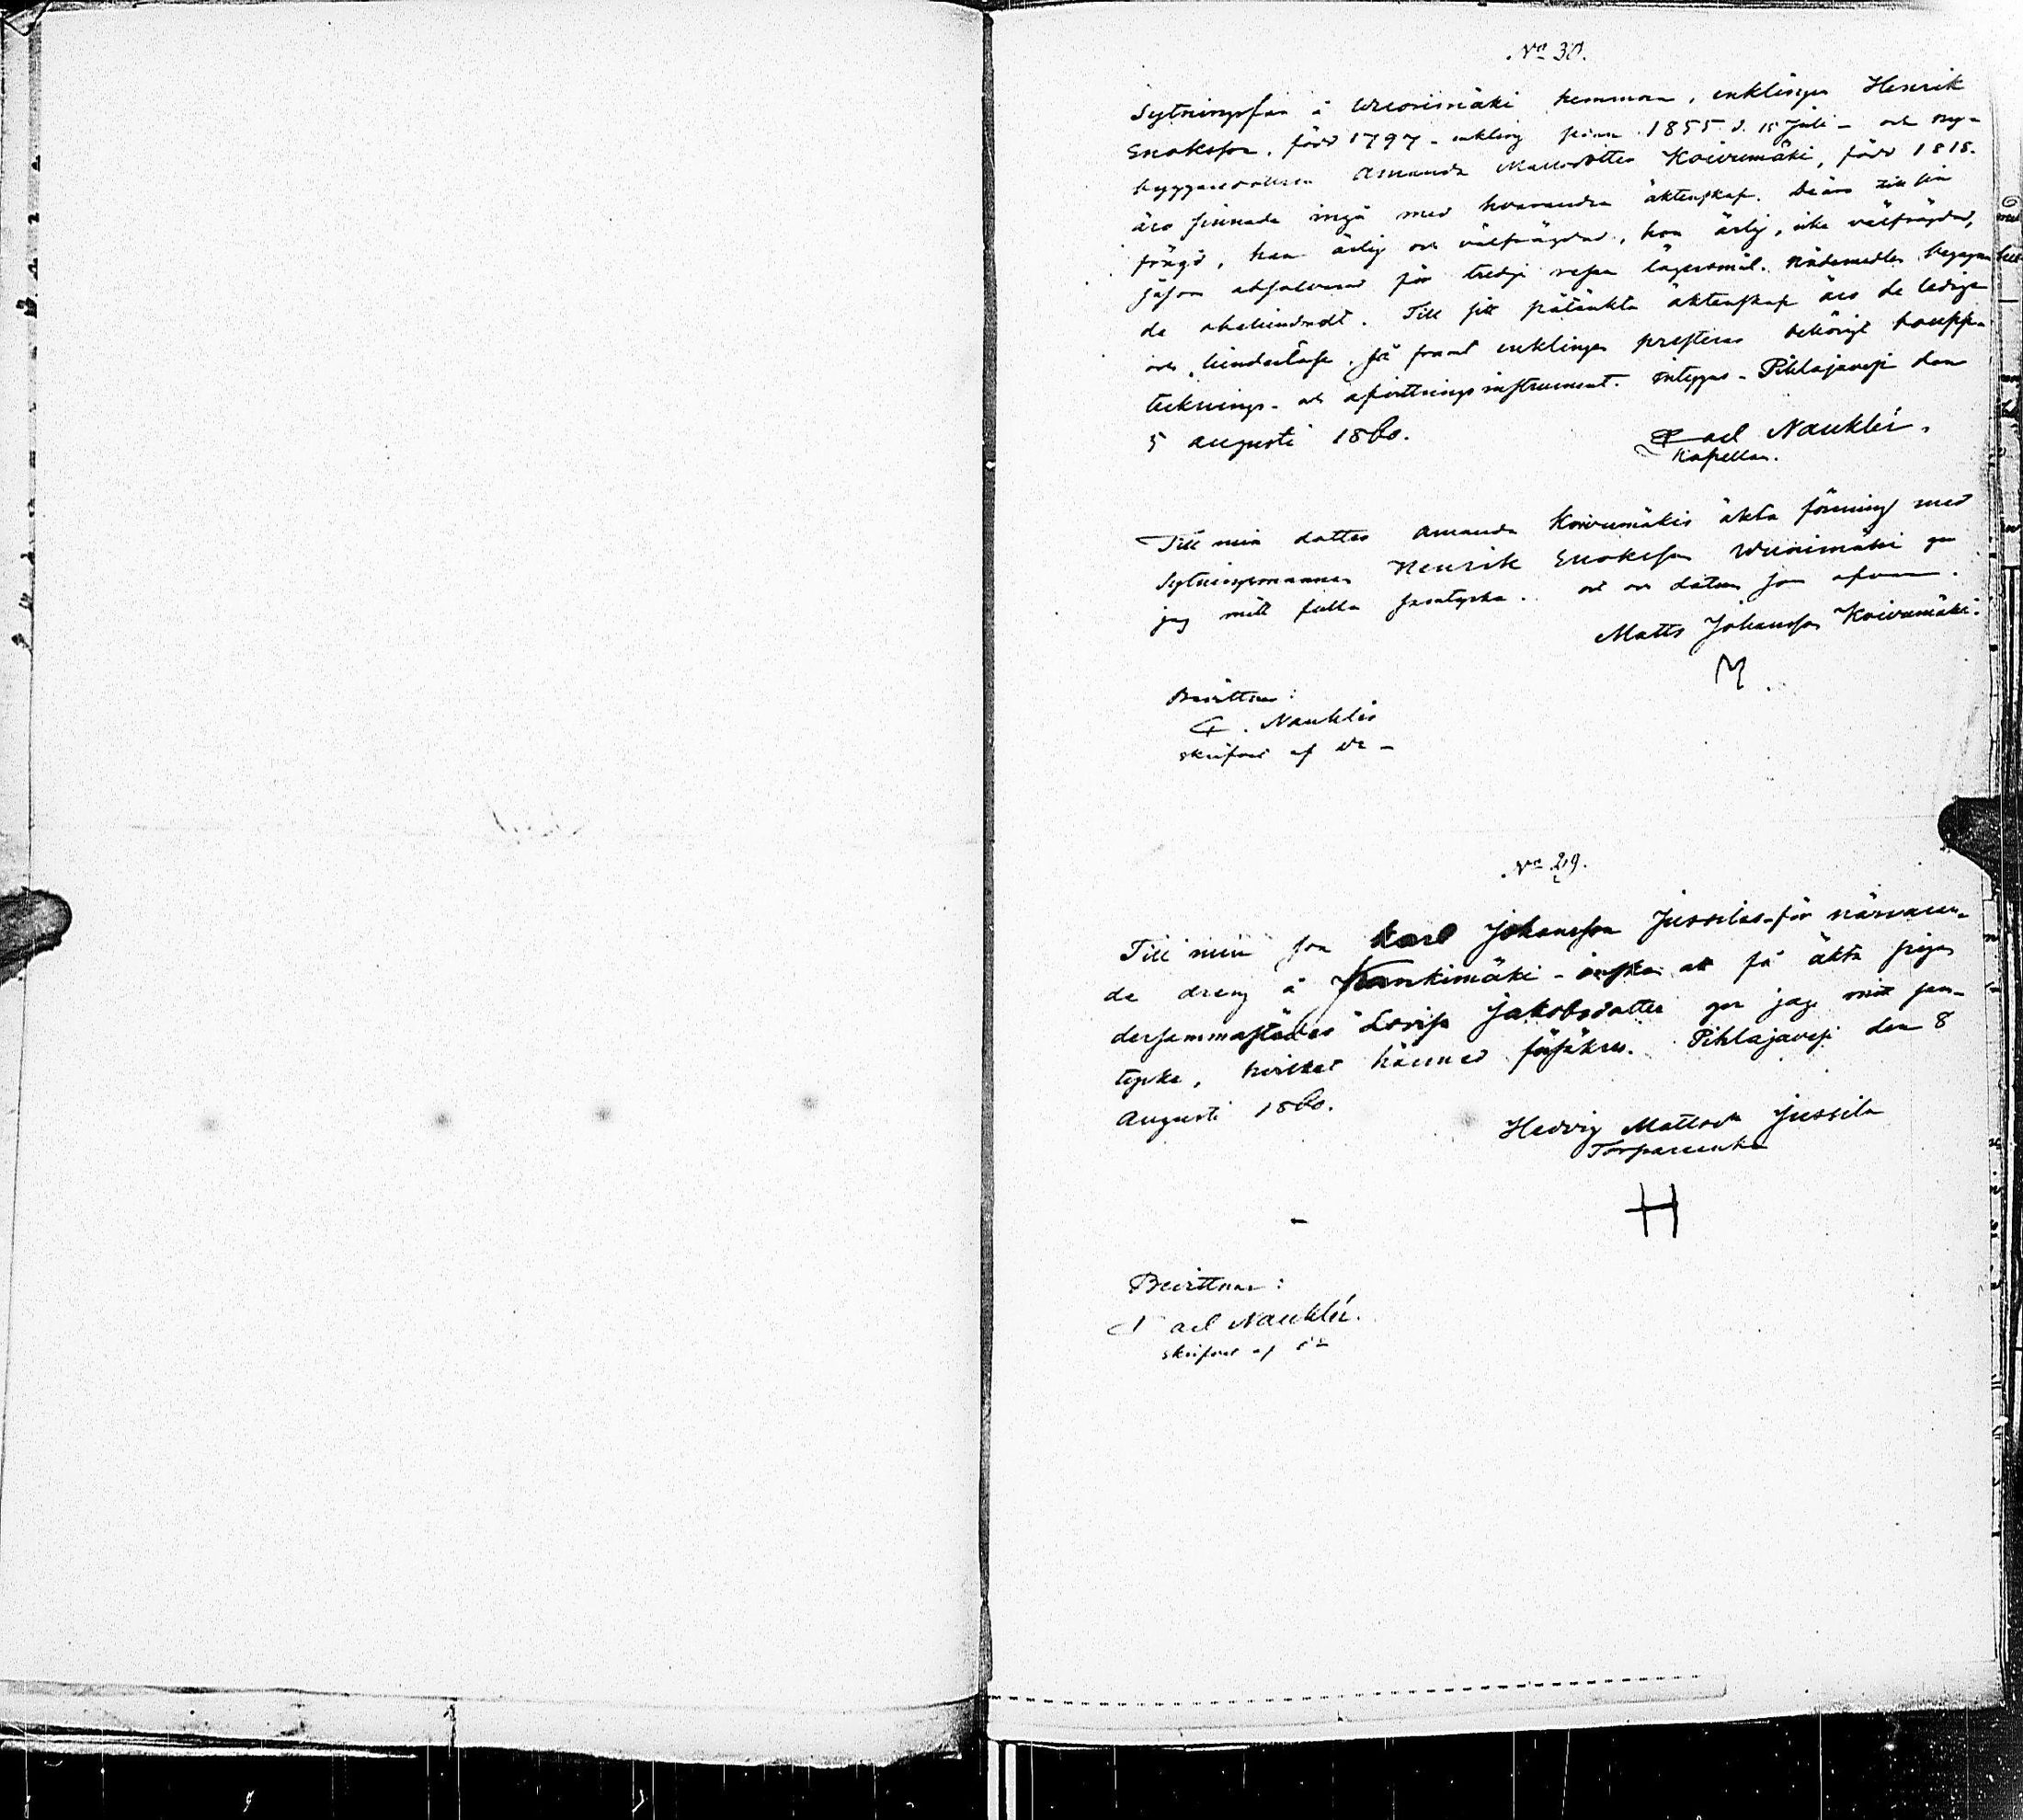 No 30.
Sytningsfar å Wuorimäki hemman, enklingen Henrik
Enoksson, född 1797 - enkling sedan 1855 d. 15 Juli - och ny-
byggaredottren Amanda Mattsdotter Koivumäki, född 1818.
äro sinnade ingå med hvarandra äktenskap. De äro till sin
frägd, han ärlig och välfrägdad, hon ärlig, icke välfrägdad,
såsom absolverad för tredje resan lägersmål. Nådemedlen begagna
de obehindradt. Till sitt påtänkta äktenskap äro de lediga
och hinderlösa, så framt enklingen presterar behörigt bouppt-
tecknings- och afvittringsinstrument. Intygas - Pihlajavesi den
5 augusti 1860.
Carl Nauklér.
Kapellan.
Till min dotter Amanda Koivumäkis äkta förening med
Sytningsmannen Henrik Enoksson Wuorimäki ger
jag mitt fulla samtycke. ort och datum som ofvan.
Matts Johansson Koivumäki.
M
Bevittnar:
C. Nauklér
skrifvet af
No 29.
Till min son Karl Johansson Jussilas - för närvaran-
de dreng å Kankimäki - önskan att få äkta pigan
dersammastädes Lovisa Jakobsdotter ger jag mitt sam-
tycke, hvilket härmed försäkras. Pihlajavesi den 8
Augusti 1860.
Hedvig Mattsdr Jussila
Torpareenka
H
Bevittnar:
Carl Nauklér.
skrifvet af